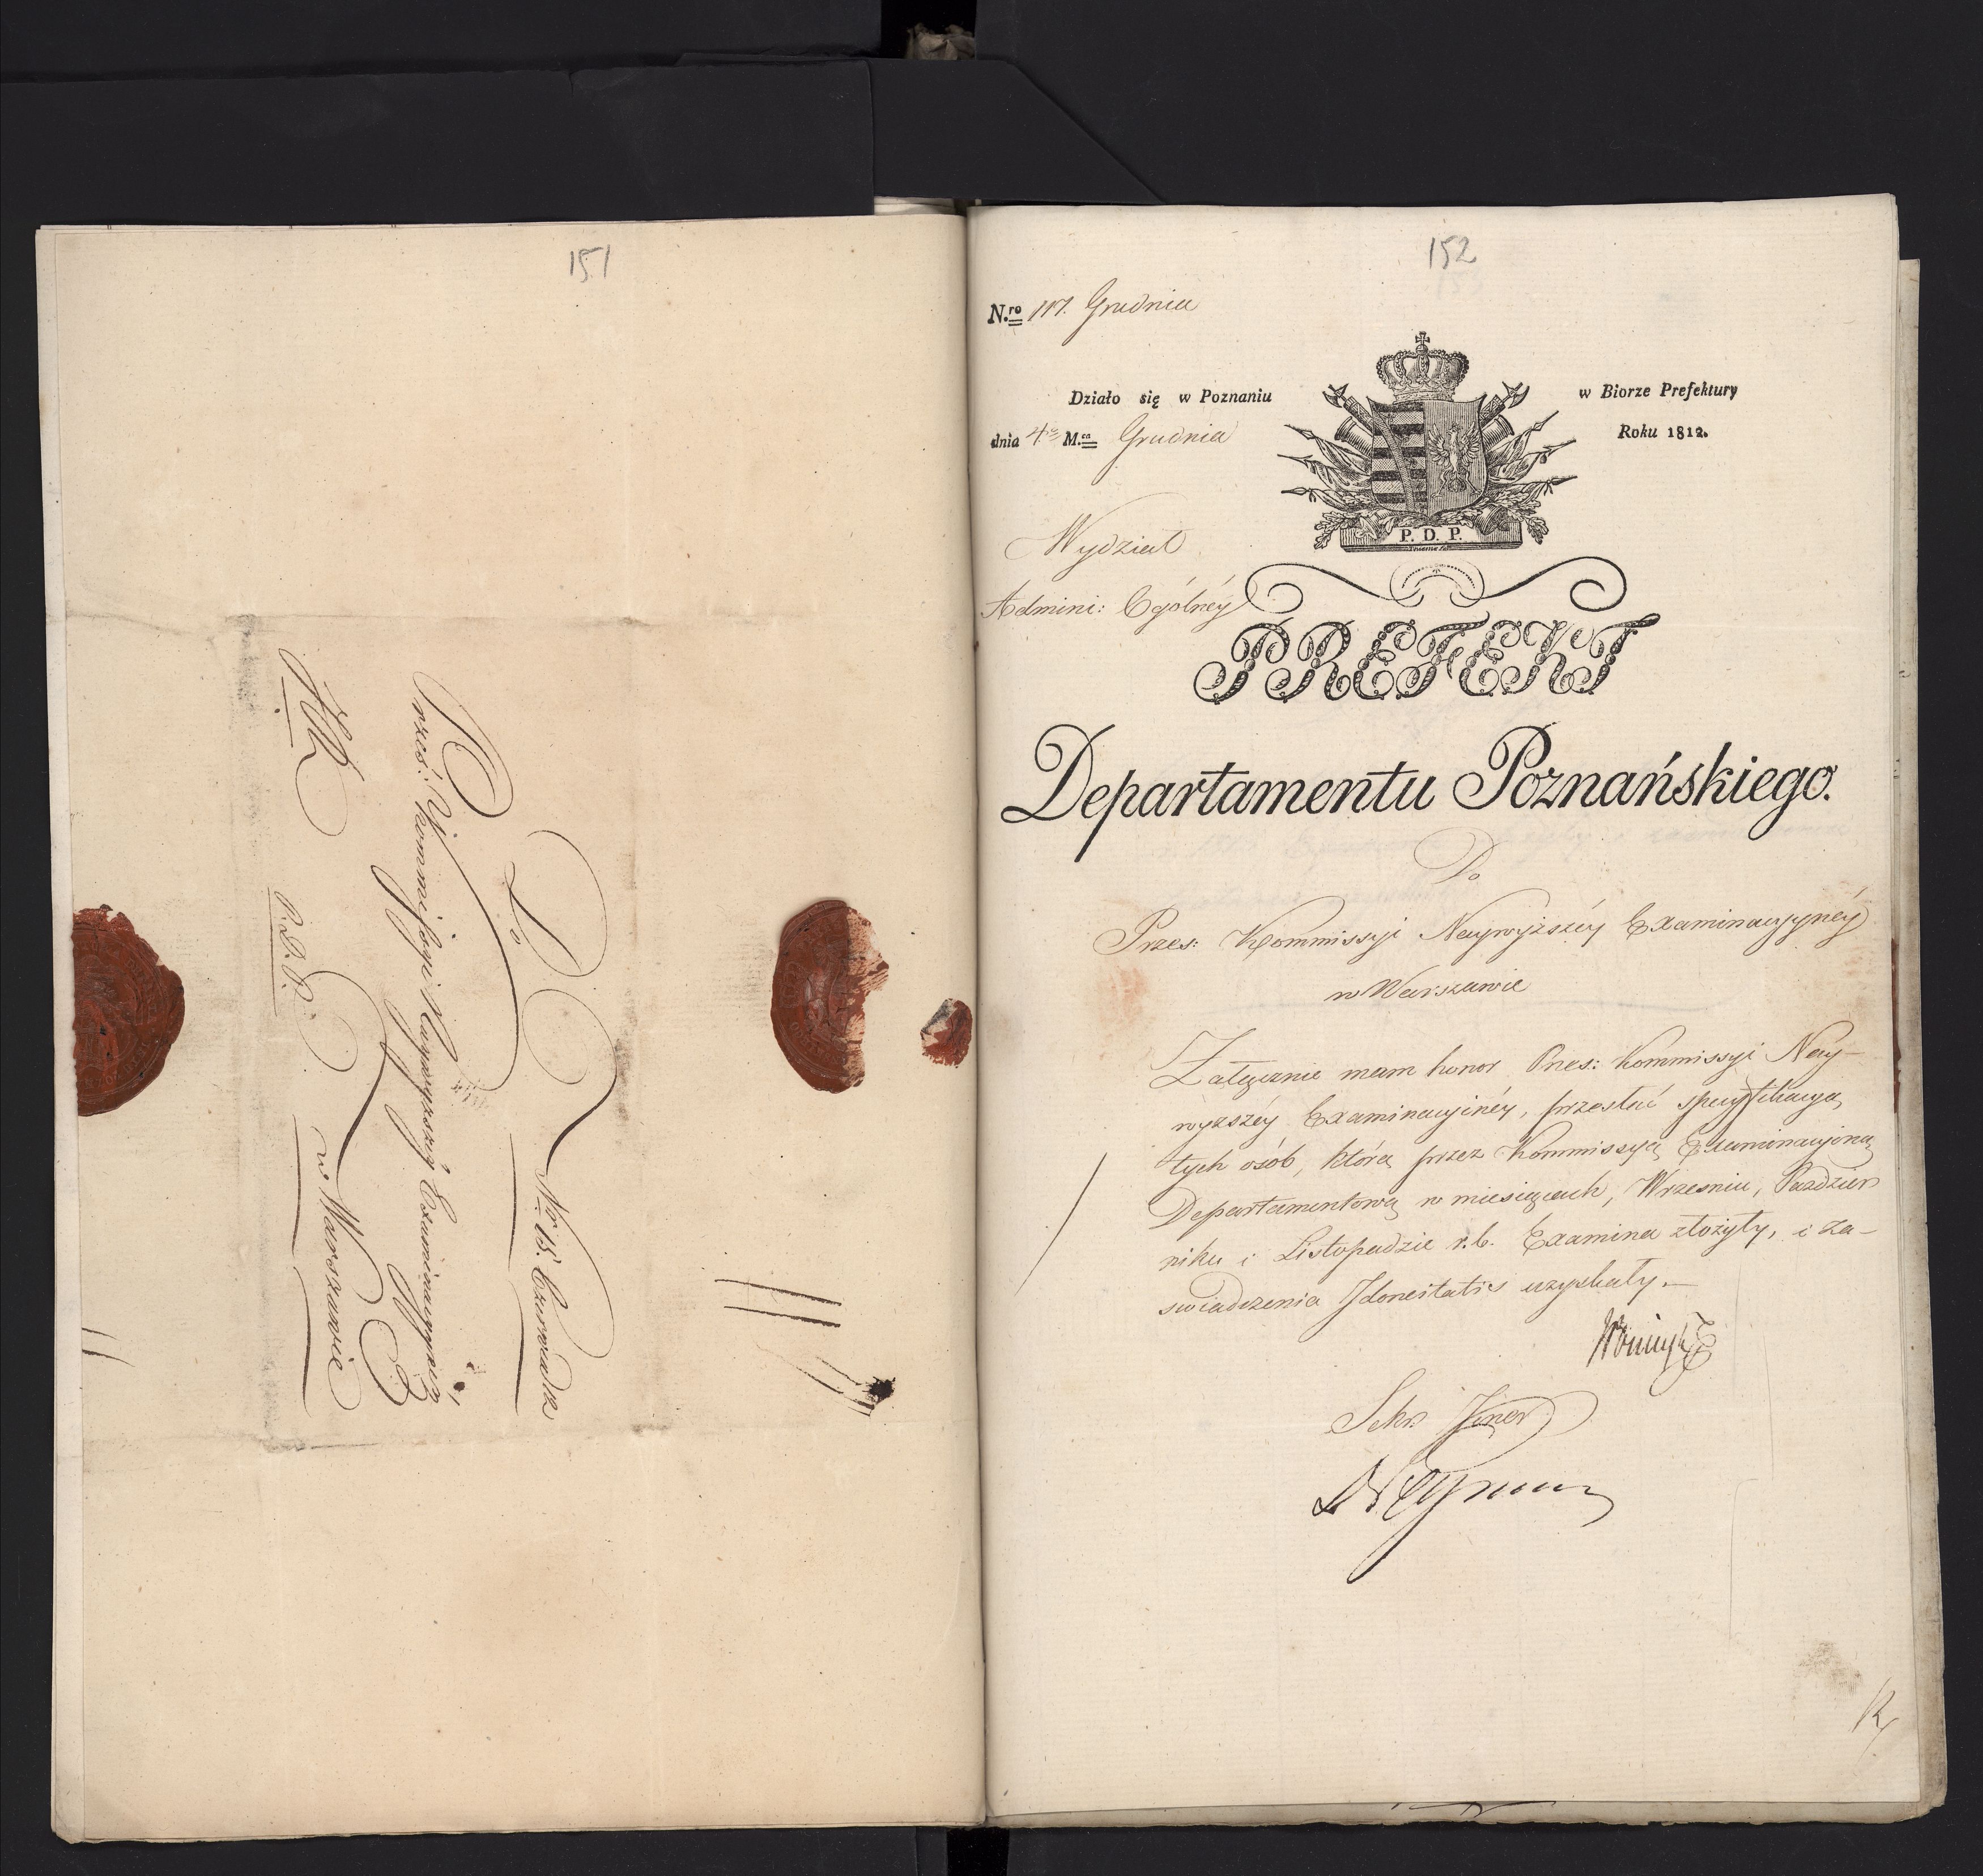 151
Do
Nro 15. Czerwca 12
Prześ: Kommissyi Naywyższéy Examinacyynéy
w Warszawie
P.D.P.
152
N.ro 117. Grudnia
Działo się w Poznaniu w Biorze Prefektury
dnia 4go M.ca Grudnia Roku 1812.
P. D. P.
Wydział
Admini: Ogólnéy
PREFEKT
Departamentu Poznańskiego.
Do
Przes: Kommissyi Naywyższéy Examinacyynéy
w Warszawie
Załącznie mam honor Przes: Kommissyi Nay-
wyższéy Examinacyinéy, przesłać specyfikacyą
tych osób, które przez Kommissyą Examinacyiną
Departamentową w miesiącach, Wrzesniu, Pazdzier
niku i Listopadzie r. b. Examina złożyły, i za-
swiadczenia Idoneitatis uzyskały.—
Sekr: Jener